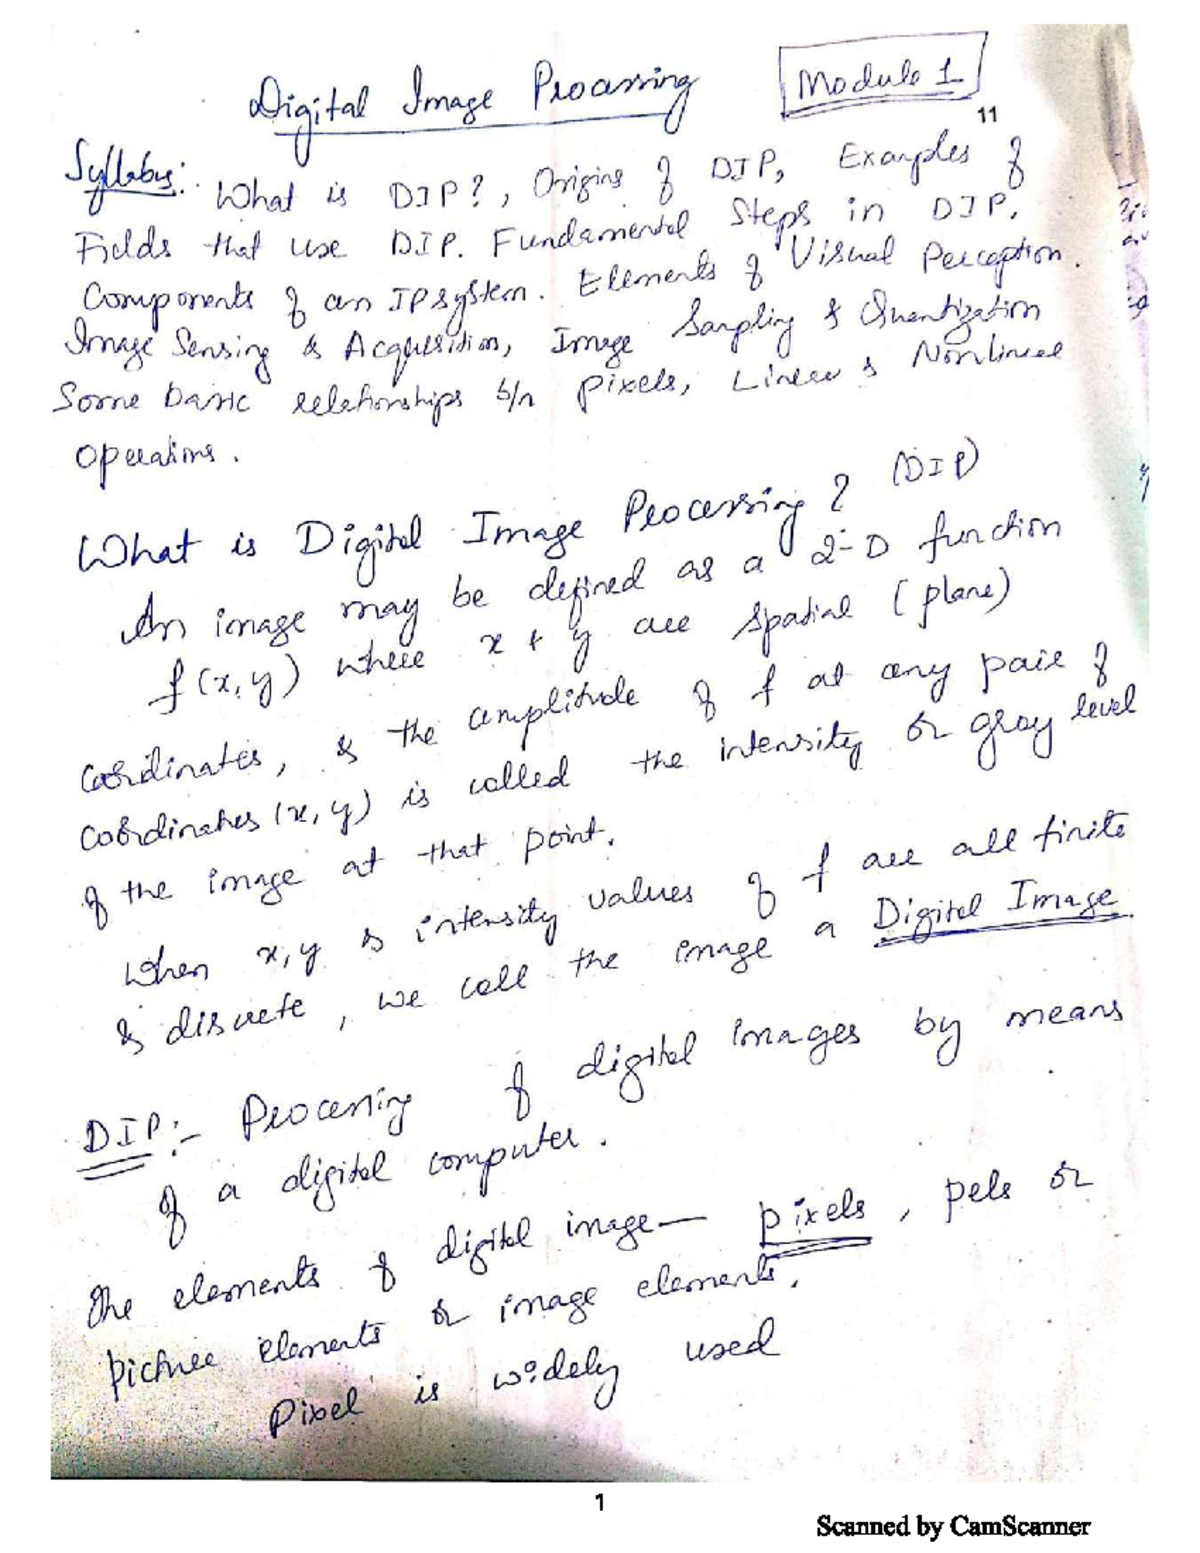 Digital Image Processing
Module 1
11
Syllabus: What is DIP?, Origins of DIP, Examples of
Fields that use DIP. Fundamental Steps in DIP.
Components of an IP system. Elements of Visual Perception.
Image Sensing & Acquisition, Image Sampling & Quantization
Some basic relationships b/n pixels, Linear & Nonlinear
operations.
What is Digital Image Processing? (DIP)
An image may be defined as a 2-D function
f(x,y) where x & y are spatial (plane)
coordinates, & the amplitude of f at any pair of
coordinates (x,y) is called the intensity or gray level
of the image at that point.
When x,y & intensity values of f are all finite
& discrete, we call the image a Digital Image
DIP:- Processing of digital images by means
of a digital computer.
The elements of digital image — pixels, pels or
picture elements or image elements.
Pixel is widely used
1
Scanned by CamScanner